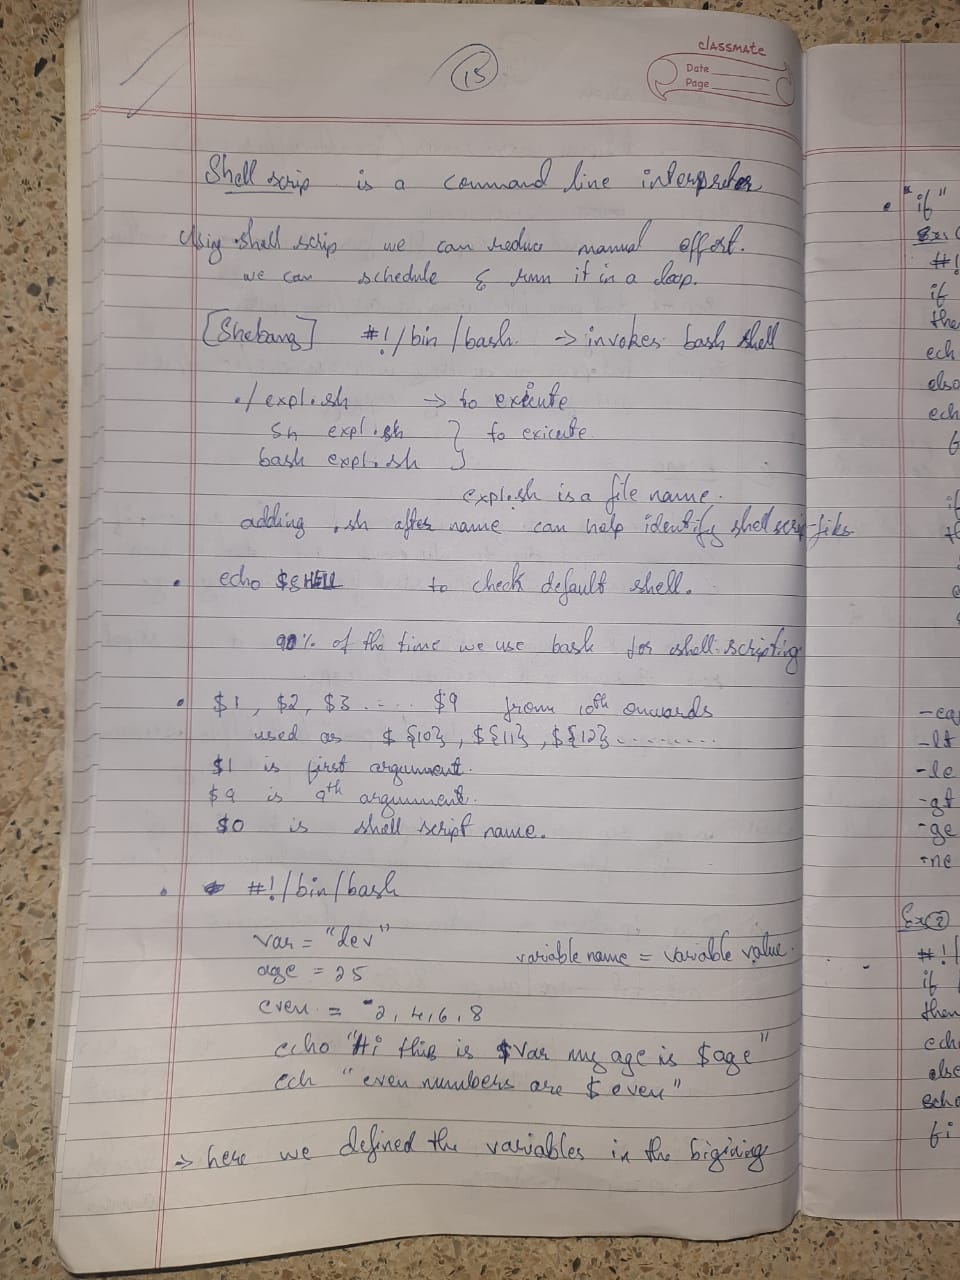 15
classmate
Date
Page
Shell scrip is a command line interpreter
Using shell scrip we can reduce manual effort.
we can schedule & run it in a loop.
[Shebang] #!/bin/bash. -> invokes bash shell
./expl.sh -> to execute
sh expl.sh } to exicute
bash expl.sh
expl.sh is a file name.
adding .sh after name can help identify shell scrip files
• echo $SHELL to check default shell.
90% of the time we use bash for shell scripting
• $1, $2, $3 ..... $9 from 10th onwards
used as ${10}, ${11}, ${12}........
$1 is first argument.
$9 is 9th argument.
$0 is shell script name.
• #!/bin/bash
var = "dev"
variable name = variable value.
age = 25
even = 2,4,6,8
echo "Hi this is $var my age is $age"
ech "even numbers are $even"
-> here we defined the variables in the bigining
• "if"
#!
if
the
ech
else
ech
-lt
-le
-gt
-ge
-ne
Ex②
#!/
if
then
echo
else
echo
fi